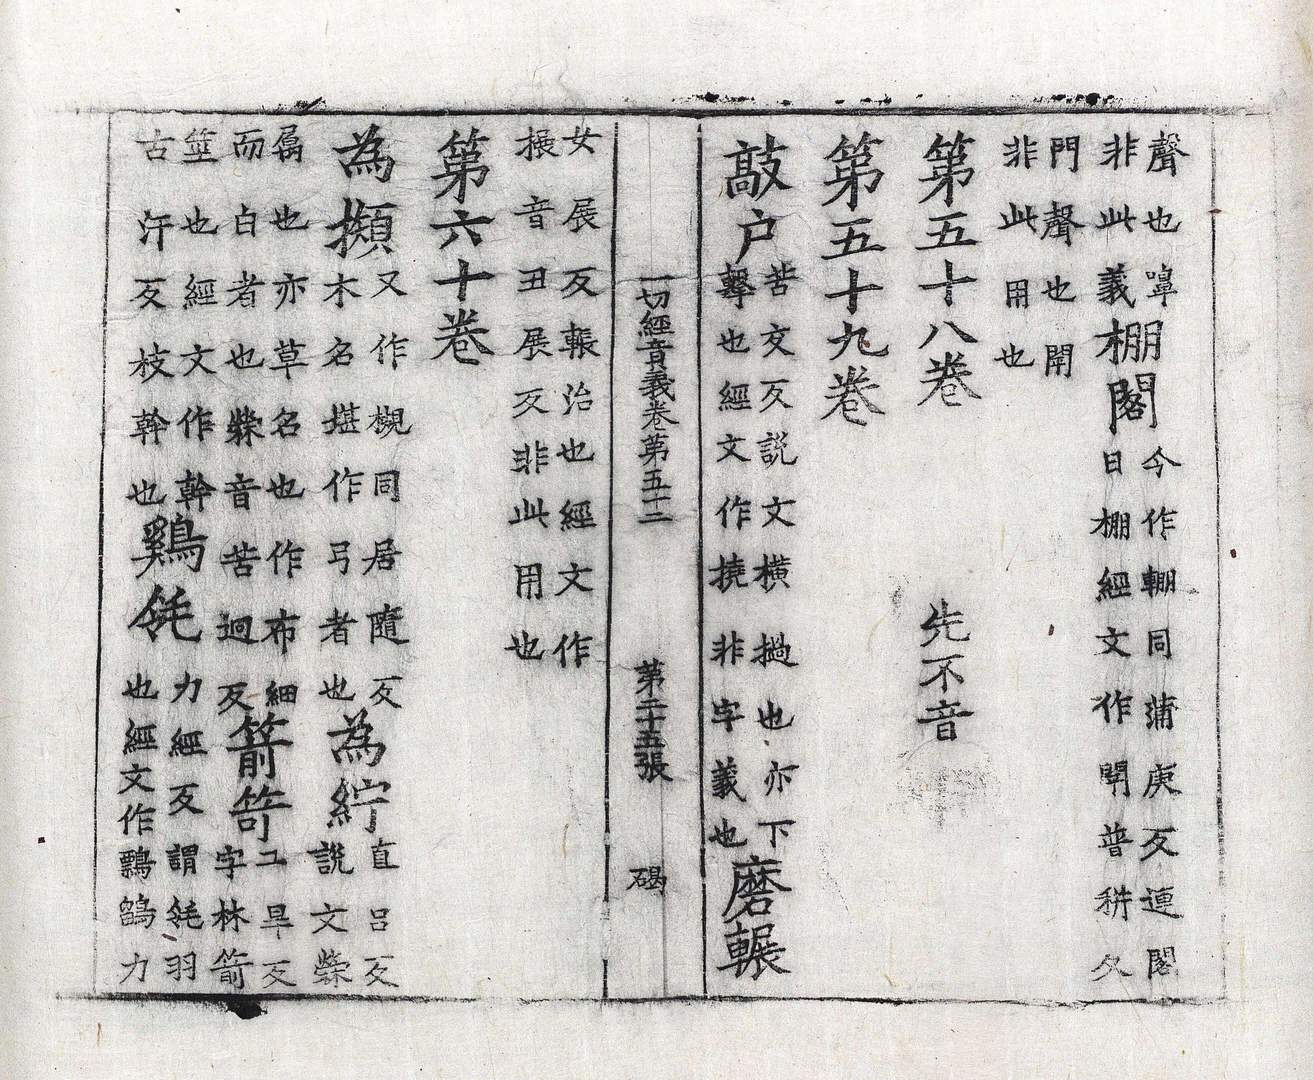 聲也嚊
非此義
棚閣
今作輣同蒲庚反連閣
曰棚經文作閛普耕反
門聲也閛
非此用也
第五十八卷 先不音
第五十九卷
敲户
苦交反説文橫撾也亦下
擊也經文作撓非字義也
磨輾
一切經音義卷第五十二 第二十五張 碣
女展反輾治也經文作
搌音丑展反非此用也
第六十卷
為
又作槻同居隨反
木名堪作弓者也
為紵
直呂反
説文檾
屬也亦草名也作布細
而白者也檾音苦迥反
箭笴
工旱反
字林箭
莖也經文作幹
古汗反枝幹也
鷄𣬛
力經反謂𣬛羽
也經文作鷅鶹力